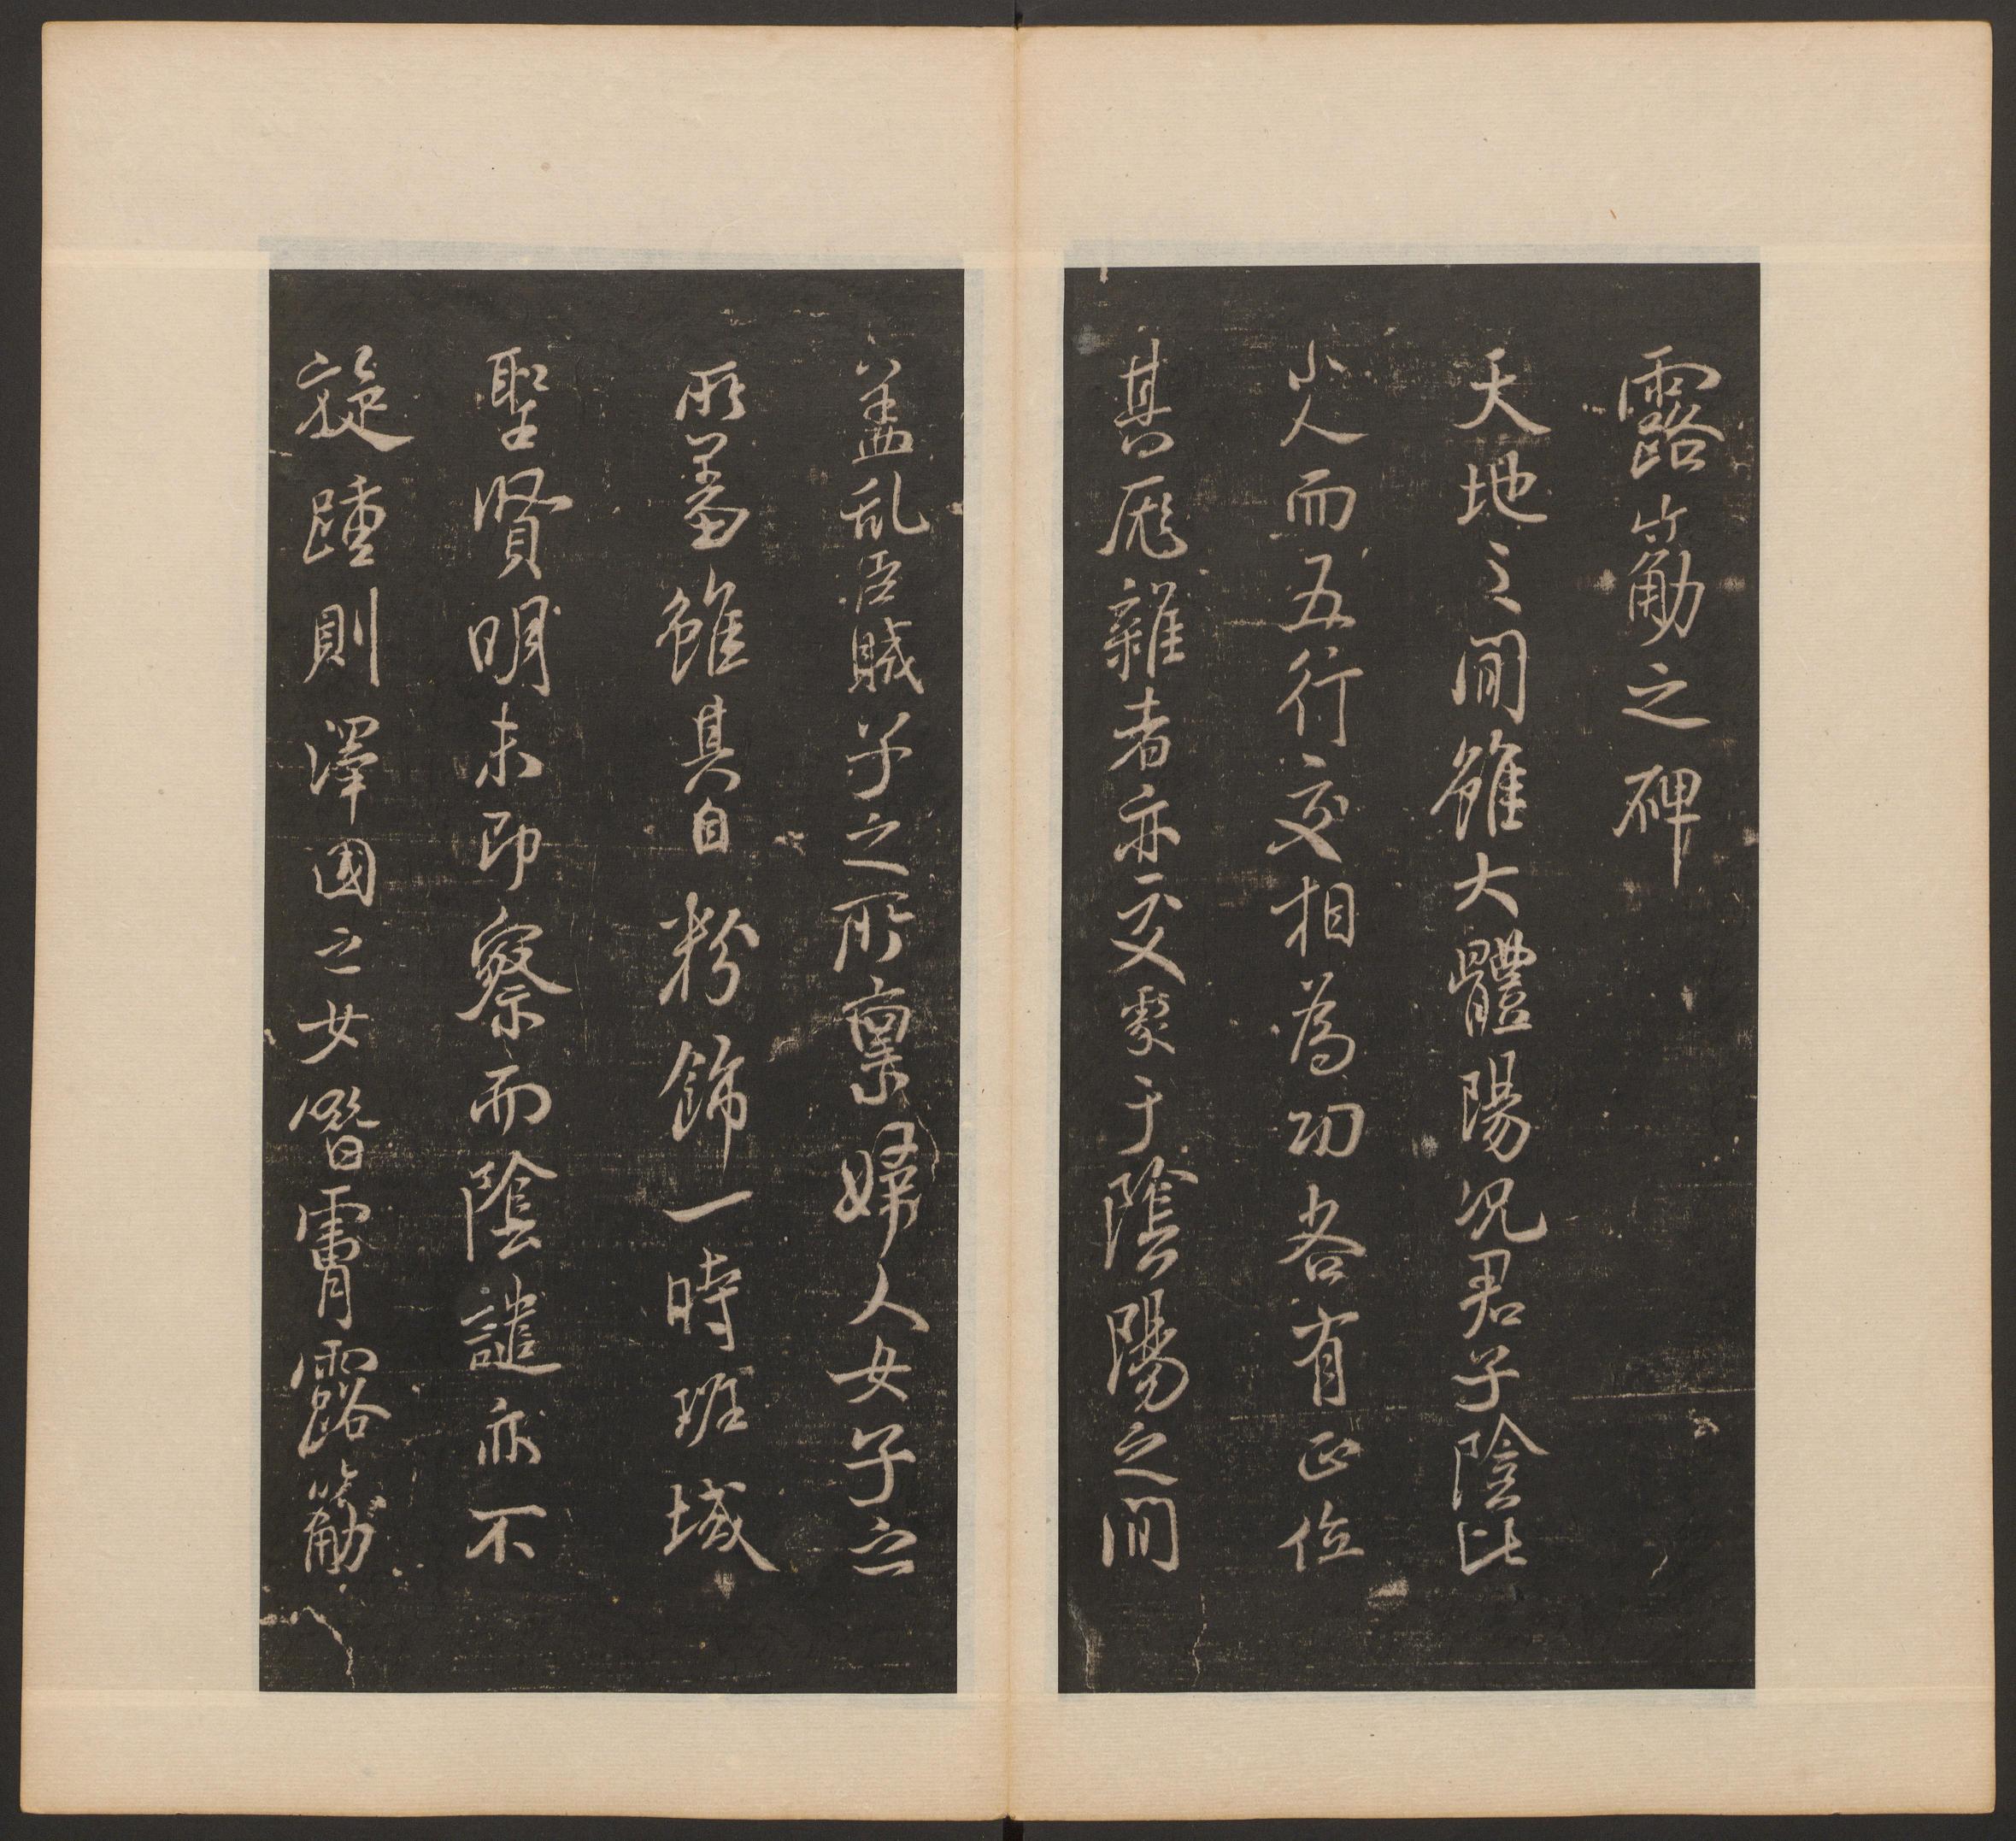 露筋之碑
天地之間雖大體陽況君子陰比
小人而五行交相為功各有正位
其厖雜者亦交處于陰陽之間
盖乱臣賊子之所稟婦人女子之
所羞雖其自粉飾一時班域
聖賢明未即察而陰譴亦不
旋踵則澤國之女僭露筋